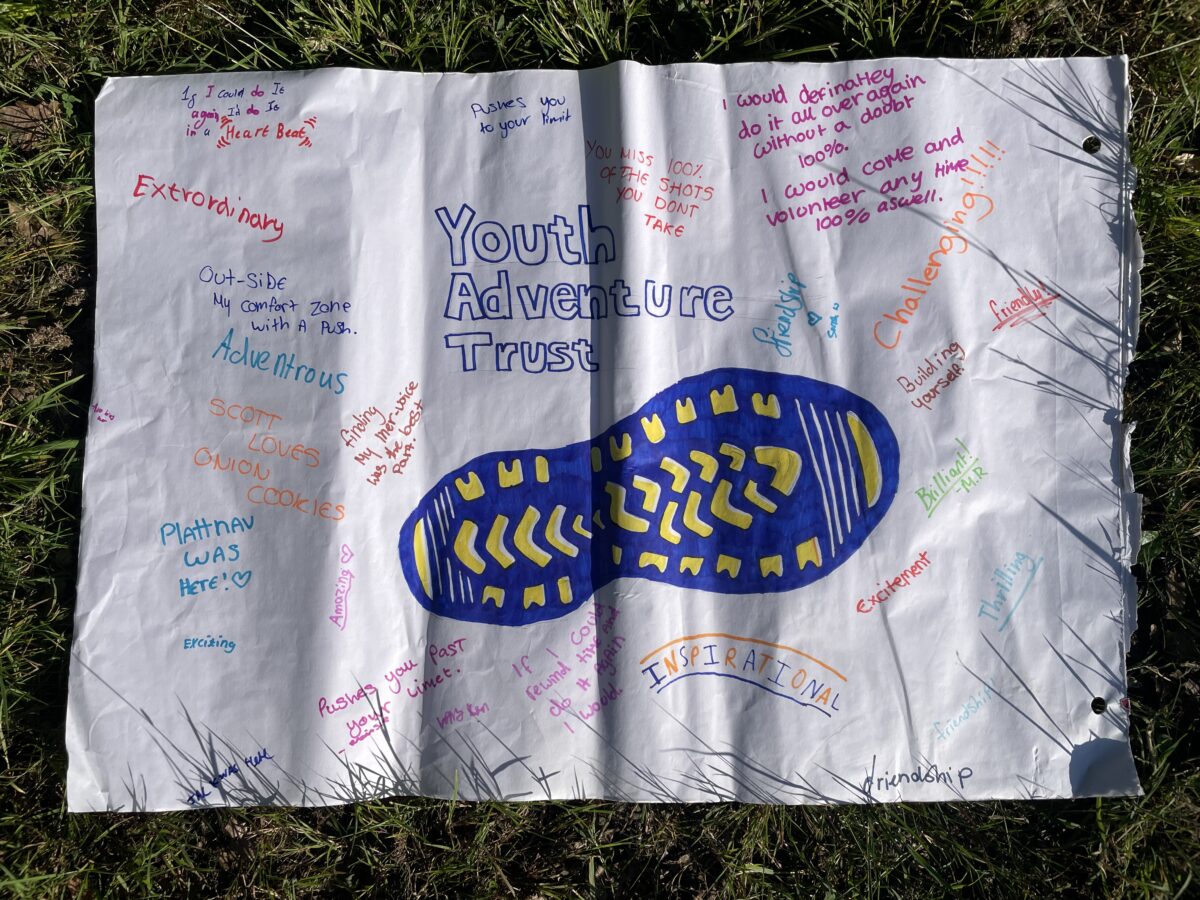 If I could do It
again I'd do It
in a Heart Beat
Pushes you
to your limit
YOU MISS 100%
OF THE SHOTS
YOU DONT
TAKE
I would definatley
do it all over again
without a doubt
100%.
I would come and
volunteer any time
100% aswell.
Extrordinary
Youth
Adventure
Trust
Out-SiDE
My comfort zone
with A Push.
Adventrous
friendship
Challenging!!!!!
friendly!
Building
yourself
SCOTT
LOVES
ONION
COOKIES
finding
My iner-voice
was the best
Part.
Brilliant!
-M.R
PlAttNAV
WAS
HERE!♡
Amazing ♡
Exciting
Excitement
Thrilling
Pushes you Past
your limet.
If I could
rewind time And
do it Again
I would.
INSPIRATIONAL
friendship!
WAS HERE
friendship